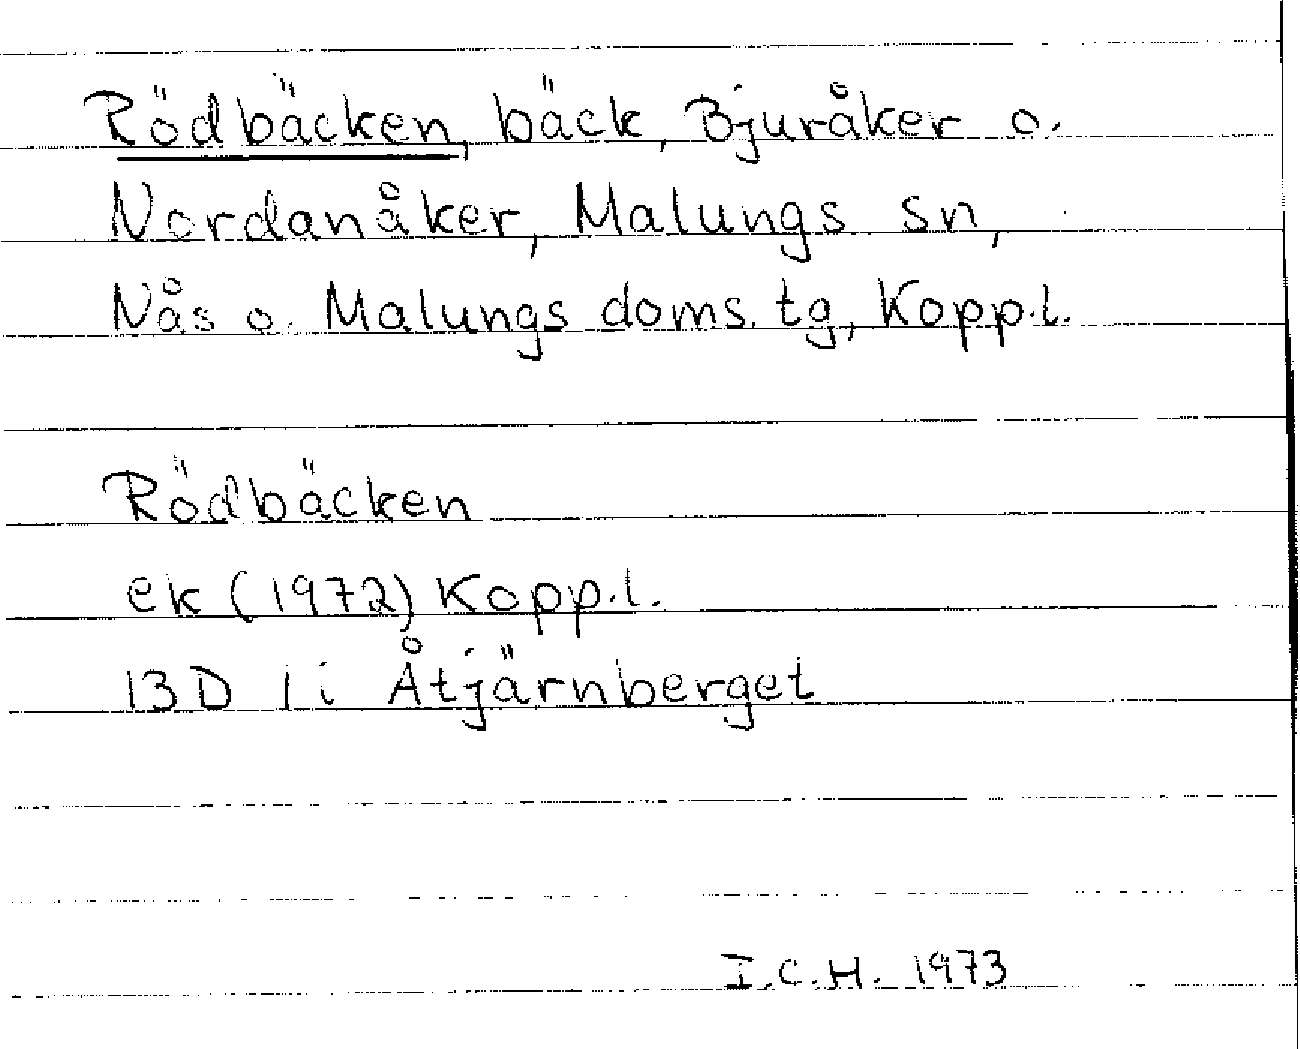 Rödbäcken, bäck, Bjuråker o.
Nordanåker, Malungs sn,
Nås o. Malungs doms. tg, Kopp.l.
Rödbäcken
ek (1972) Kopp.l.
13D 1i Åtjärnberget
I.C.H. 1973